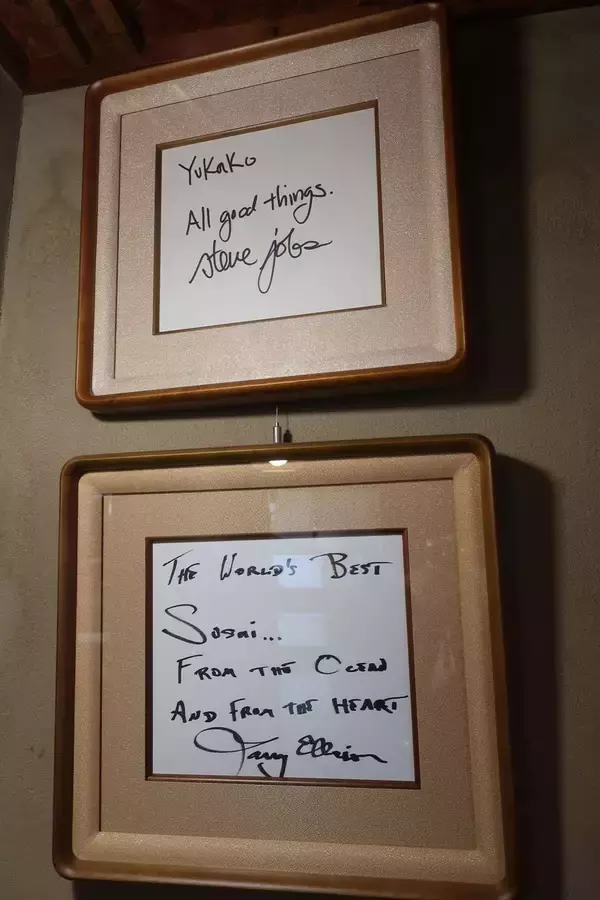 Yukako
All good things.
steve jobs
THE WORLD'S BEST
SUSHI...
FROM THE OCEAN
AND FROM THE HEART
Larry Ellison